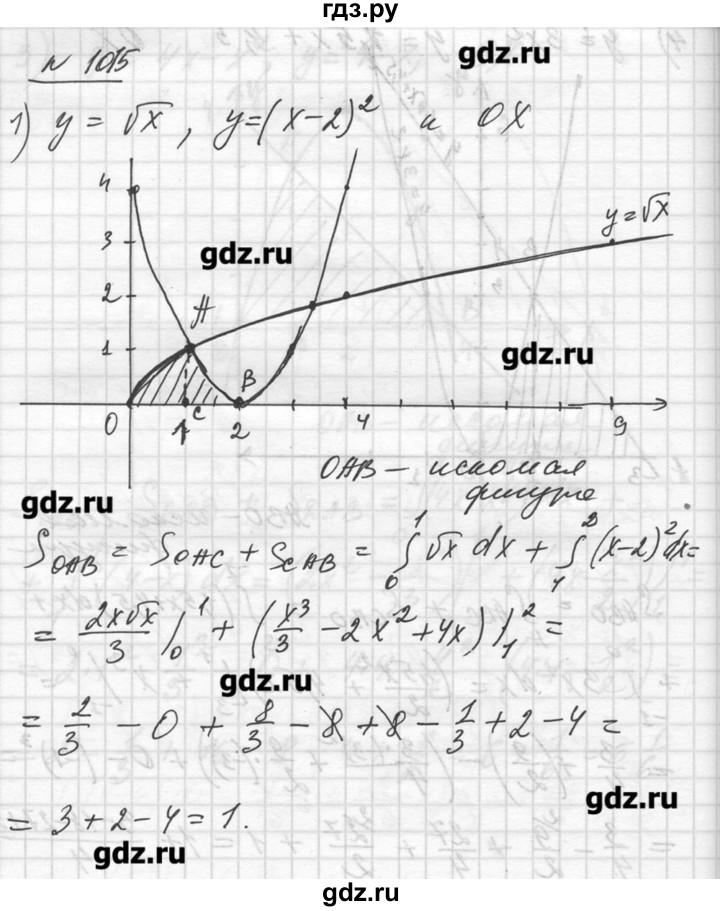 гдз.ру
gdz.ru
N 1015
1) y = √x , y=(x-2)² и OX
4
3
2
1
A
B
C
y=√x
gdz.ru
gdz.ru
0 1 2 4 9
OAB – искомая
фигура
gdz.ru
S_OAB = S_OAC + S_CAB = ∫₀¹ √x dx + ∫₁² (x-2)² dx =
= 2x√x/3 |₀¹ + (x³/3 - 2x² + 4x) |₁² =
gdz.ru
= 2/3 - 0 + 8/3 - 8 + 8 - 1/3 + 2 - 4 =
gdz.ru
= 3 + 2 - 4 = 1.
gdz.ru
gdz.ru